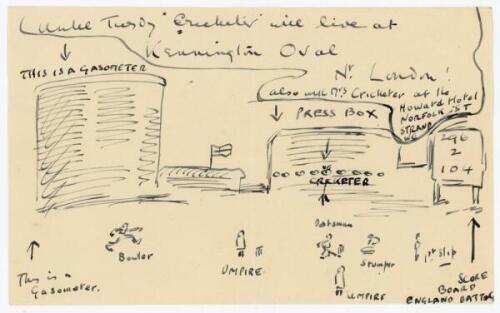 Tuesday "Cricketer" will live at
Kennington Oval
Nr. London!
THIS IS A GASOMETER
(also with Mrs Cricketer at the
Howard Hotel
NORFOLK ST
STRAND
W.C.
PRESS BOX
296
2
104
CRICKETER
Batsman
Bowler
UMPIRE
Stumper
1st Slip
This is a
Gasometer.
UMPIRE
SCORE
BOARD
ENGLAND BATTING